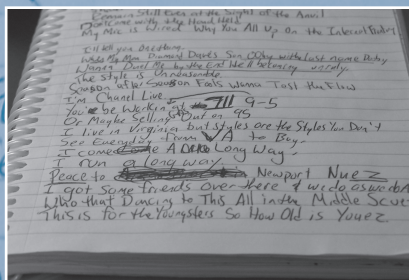 Remain Still Even at the Sight of the Anvil
with the Hand Held
My Mic is Wired Why You All Up On the Internet Baby
I'll tell you
My Man Diamond Dares Son Okay with last name Daley
Wanna Duel Me by the End He'll becoming
The Style is Unreasonable
Season after Season Fools Wanna Test the Flow
I'm Chanel Live
You be Working at 711 9-5
Or Maybe Selling Out on 95
I live in Virginia but styles are the Styles You Don't
See Everyday from VA to Bay.
I come A Long Way.
I run a long way
Peace to Newport Nuez
I got some friends over there & we do as we do
Who that Dancing to This All in the Middle
This is for the Youngsters So How Old is Yuuez